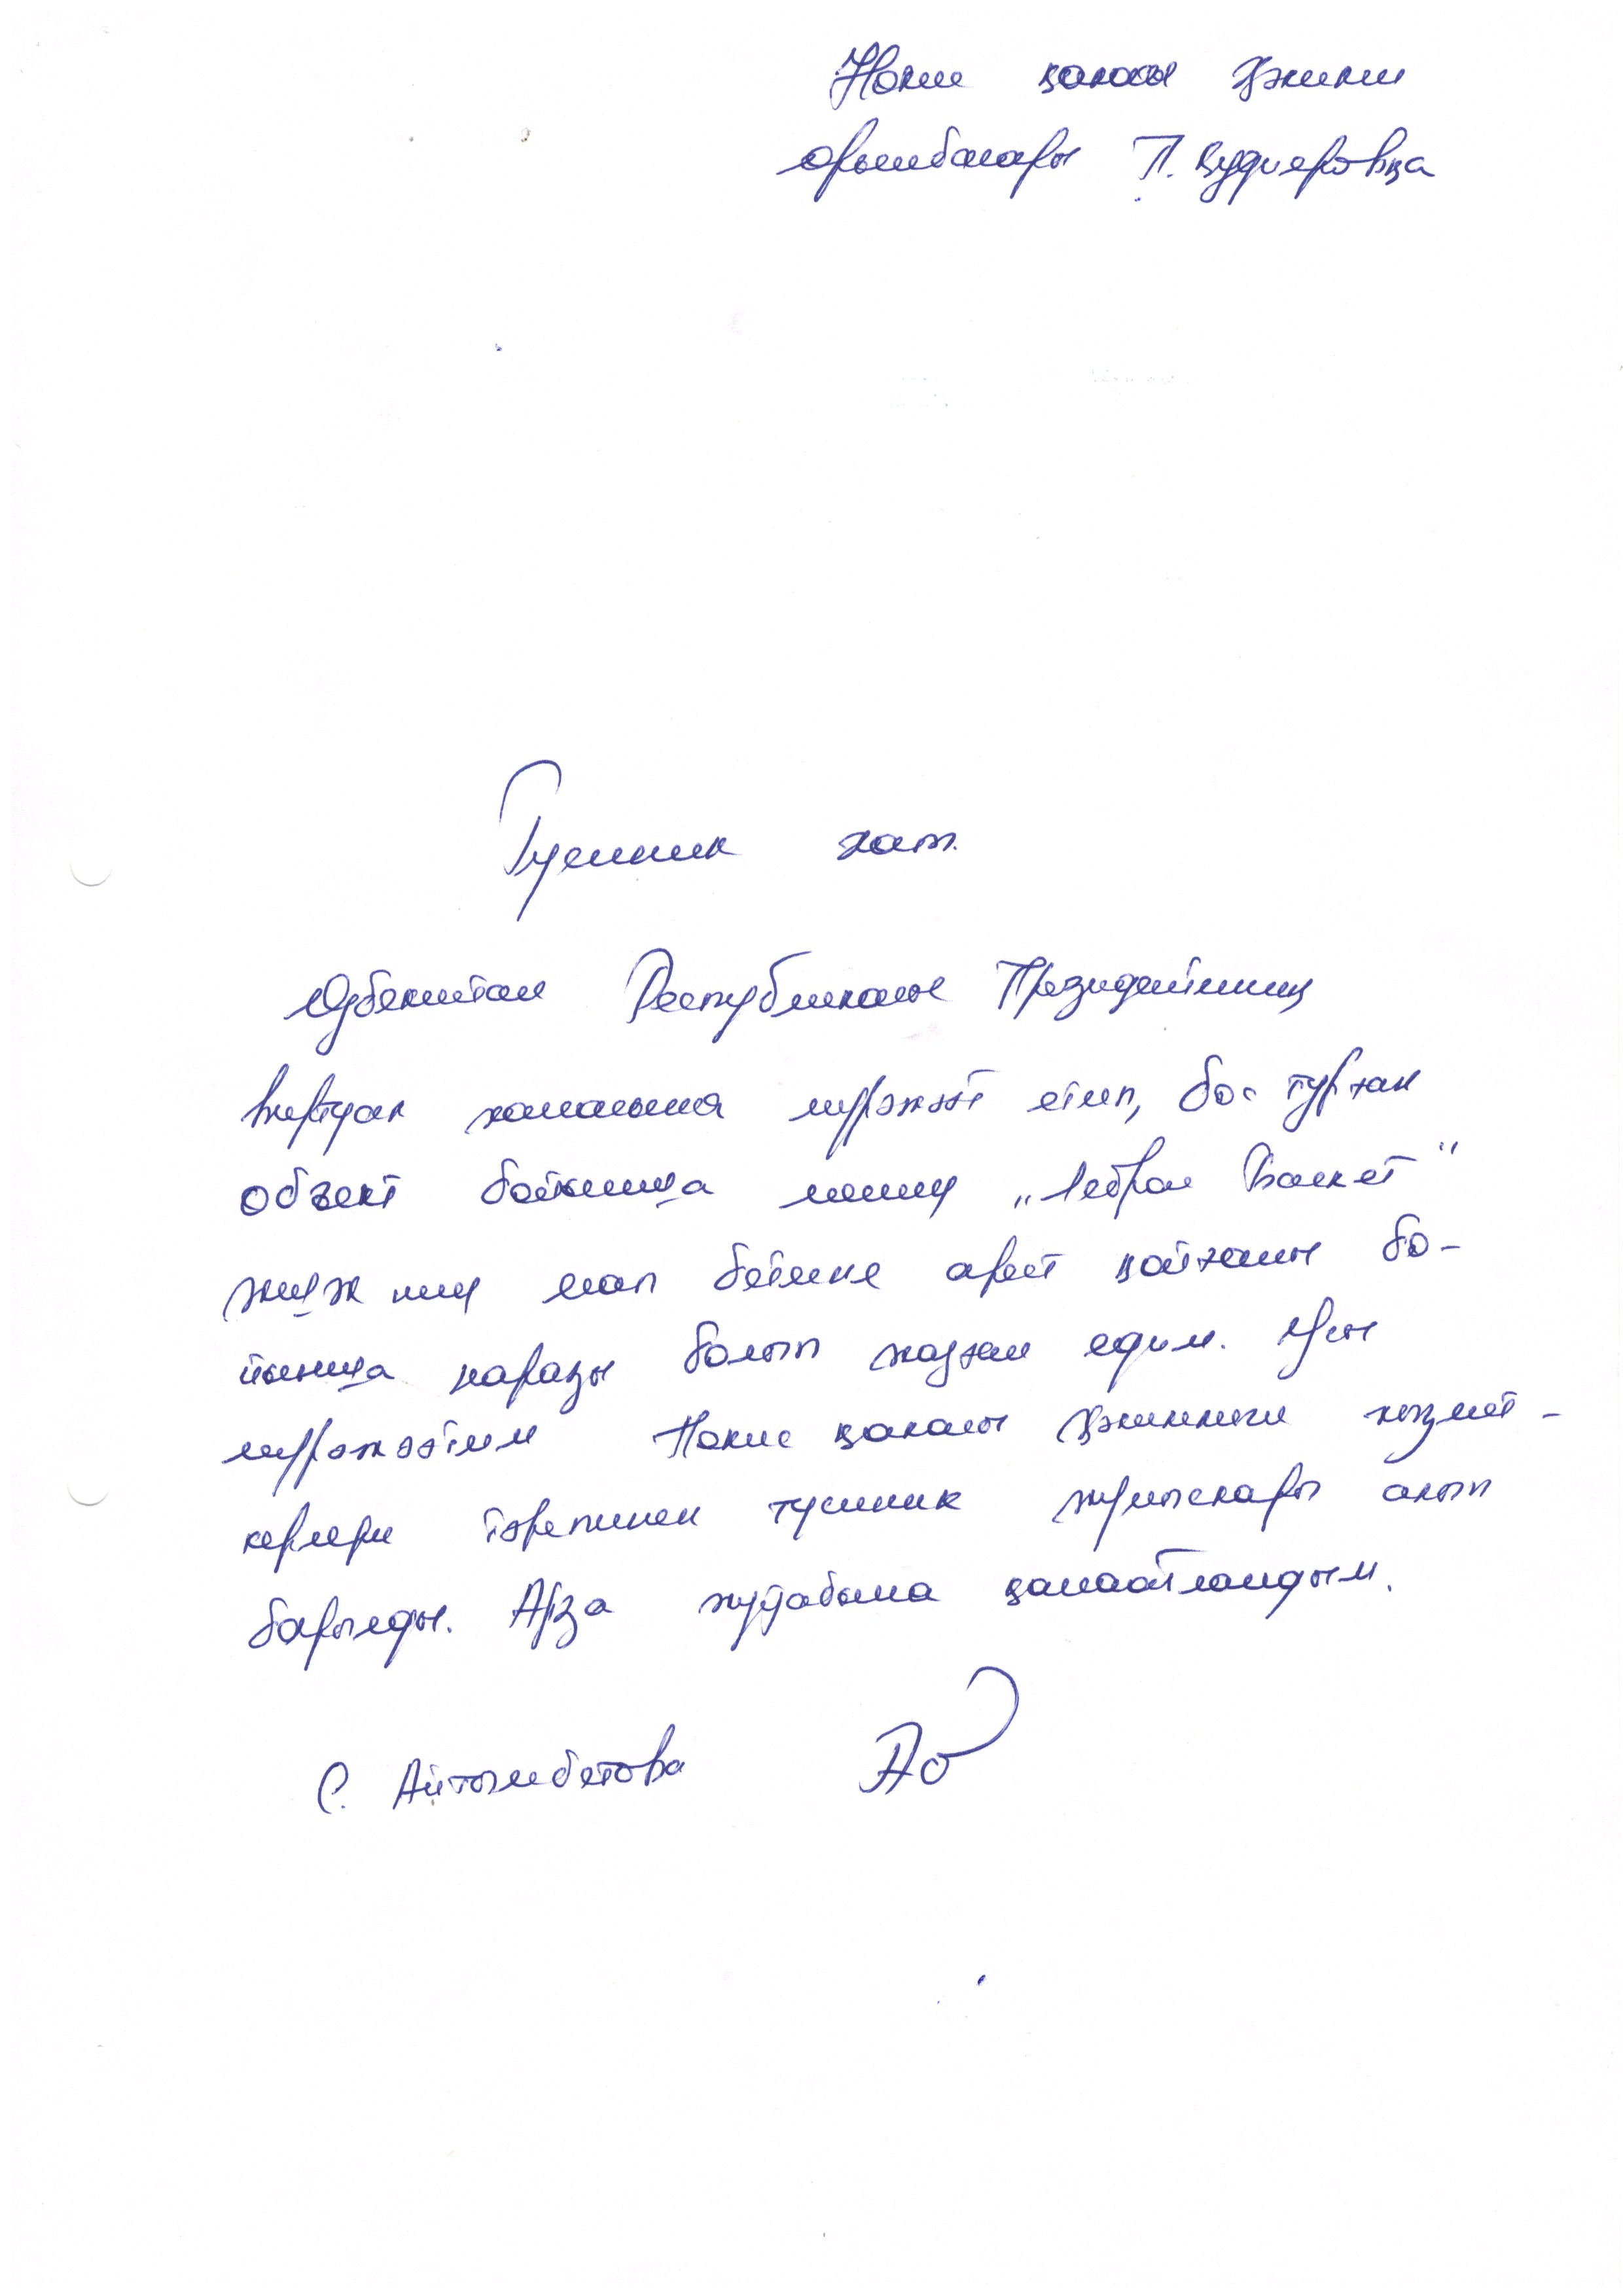 Нөкис қаласы ҳәкими
орынбасары П. Қудияровқа
Түсиник хат.
Өзбекистан Республикасы Президентиниң
виртуал ханасына мүрәжәт етип, бос турған
объект бойынша мениң „Либрал Баскет"
ЖШЖ ниң есап бетине арест қойғаны бо-
йынша наразы болып жазған едим. Усы
мүрәжәтим Нөкис қаласы ҳәкимлиги хызмет-
керлери тәрепинен түсиник жумыслары алып
барылды. Арза жуўабына қанаатландым.
С. Айтымбетова